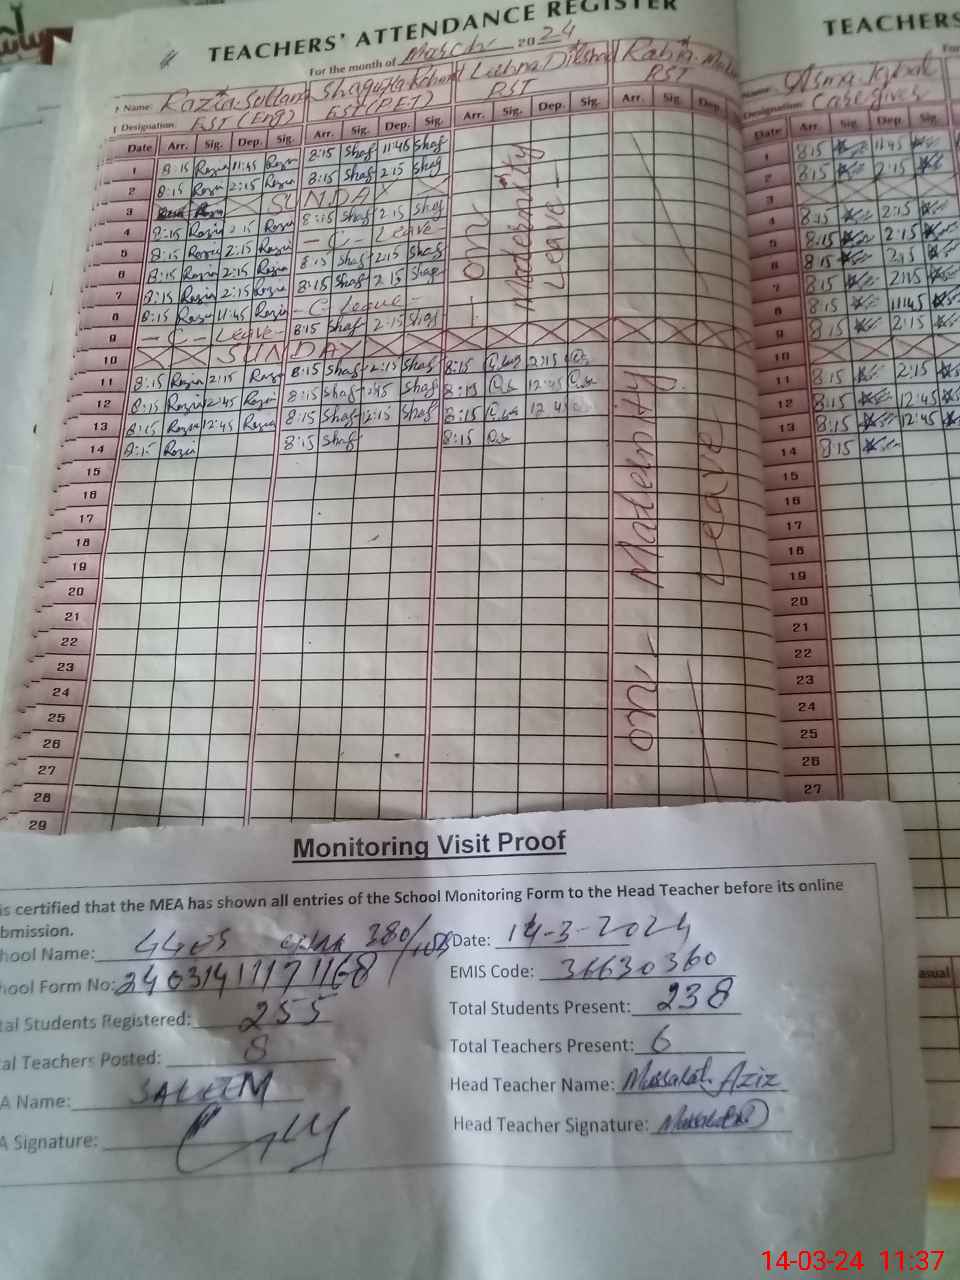 TEACHERS' ATTENDANCE REGISTER
For the month of March 2024
Name: Razia Sultana Shagufta Lubna Dilshad Rabia
Designation: EST (Eng) EST (PET) PST PST
Date Arr. Sig. Dep. Sig. Arr. Sig. Dep. Sig. Arr. Sig. Dep. Sig. Arr. Sig. Dep.
1 8:15 Razia 11:45 Razia 8:15 Shaf 11:45 Shaf
2 8:15 Razia 2:15 Razia 8:15 Shaf 2:15 Shaf
3 SUNDAY
4 8:15 Razia 2:15 Razia 8:15 Shaf 2:15 Shaf
5 8:15 Razia 2:15 Razia - C - Leave -
6 8:15 Razia 2:15 Razia 8:15 Shaf 2:15 Shaf
7 8:15 Razia 2:15 Razia 8:15 Shaf 2:15 Shaf
8 8:15 Razia 11:45 Razia - C - Leave -
9 - C - Leave - 8:15 Shaf 2:15 Shaf
10 SUNDAY
11 8:15 Razia 2:15 Razia 8:15 Shaf 2:15 Shaf 8:15 2:15
12 8:15 Razia 12:45 Razia 8:15 Shaf 12:45 Shaf 8:15 12:45
13 8:15 Razia 12:45 Razia 8:15 Shaf 12:15 Shaf 8:15 12:45
14 8:15 Razia 8:15 Shaf 8:15
15
16
17
18
19
20
21
22
23
24
25
26
27
28
29
- ON
Maternity
Leave -
ON - Maternity
Leave
TEACHERS
Name: Asma Iqbal
Designation: Care giver
Date Arr. Sig. Dep. Sig.
1 8:15 11:45
2 8:15 2:15
3
4 8:15 2:15
5 8:15 2:15
6 8:15 2:15
7 8:15 2:15
8 8:15 11:45
9 8:15 2:15
10
11 8:15 2:15
12 8:15 12:45
13 8:15 12:45
14 8:15
15
16
17
18
19
20
21
22
23
24
25
26
27
asual
Monitoring Visit Proof
is certified that the MEA has shown all entries of the School Monitoring Form to the Head Teacher before its online
bmission.
hool Name: GGES Chak 380/
Date: 14-3-2024
hool Form No: 24031411171168
EMIS Code: 36630360
tal Students Registered: 255
Total Students Present: 238
tal Teachers Posted: 8
Total Teachers Present: 6
A Name: SALEEM
Head Teacher Name: Mussarat Aziz
A Signature:
Head Teacher Signature:
14-03-24 11:37